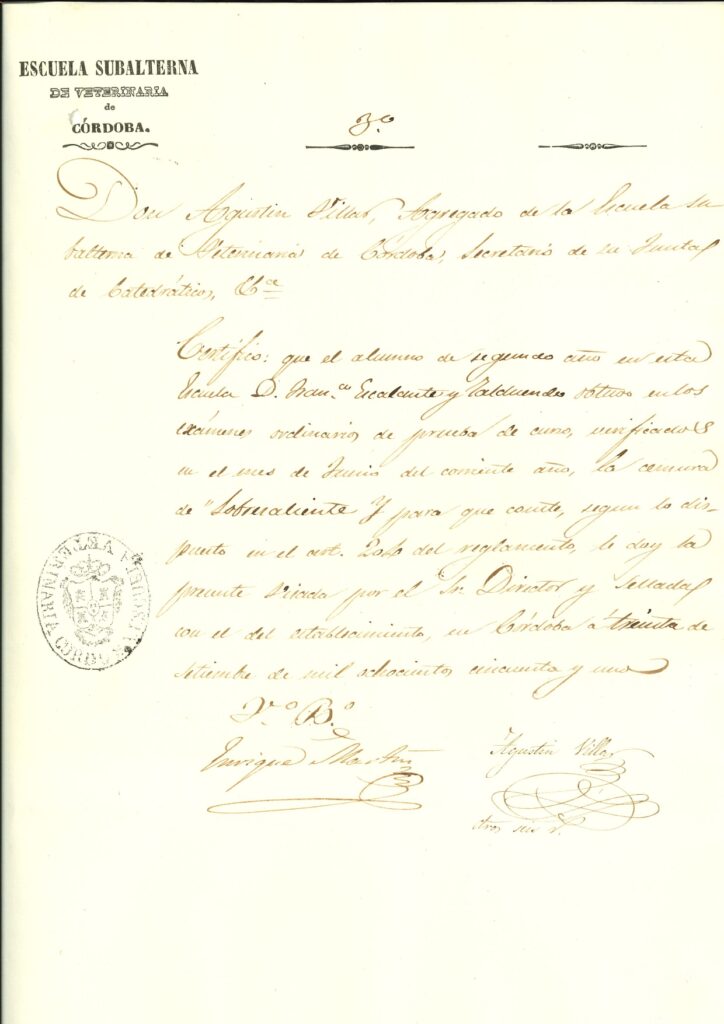 ESCUELA SUBALTERNA
DE VETERINARIA
de
CÓRDOBA.
3.º
Don Agustin Villar, Agregado de la Escuela su
balterna de Veterinaria de Córdoba, Secretario de su Junta
de Catedráticos, &ce
Certifico: que el alumno de segundo año en esta
Escuela D. Fran.co Escalante y Valduendo obtuvo en los
exámenes ordinarios de prueba de curso, verificados
en el mes de Junio del corriente año, la censura
de "Sobresaliente Y para que conste, segun lo dis-
puesto en el art. del reglamento, le doy la
presente visada por el Sr. Director y sellada
con el del establecimiento, en Córdoba á treinta de
Setiembre de mil ochocientos cincuenta y uno
V.º B.º
Enrique Martin
Agustin Villar
VETERINARIA